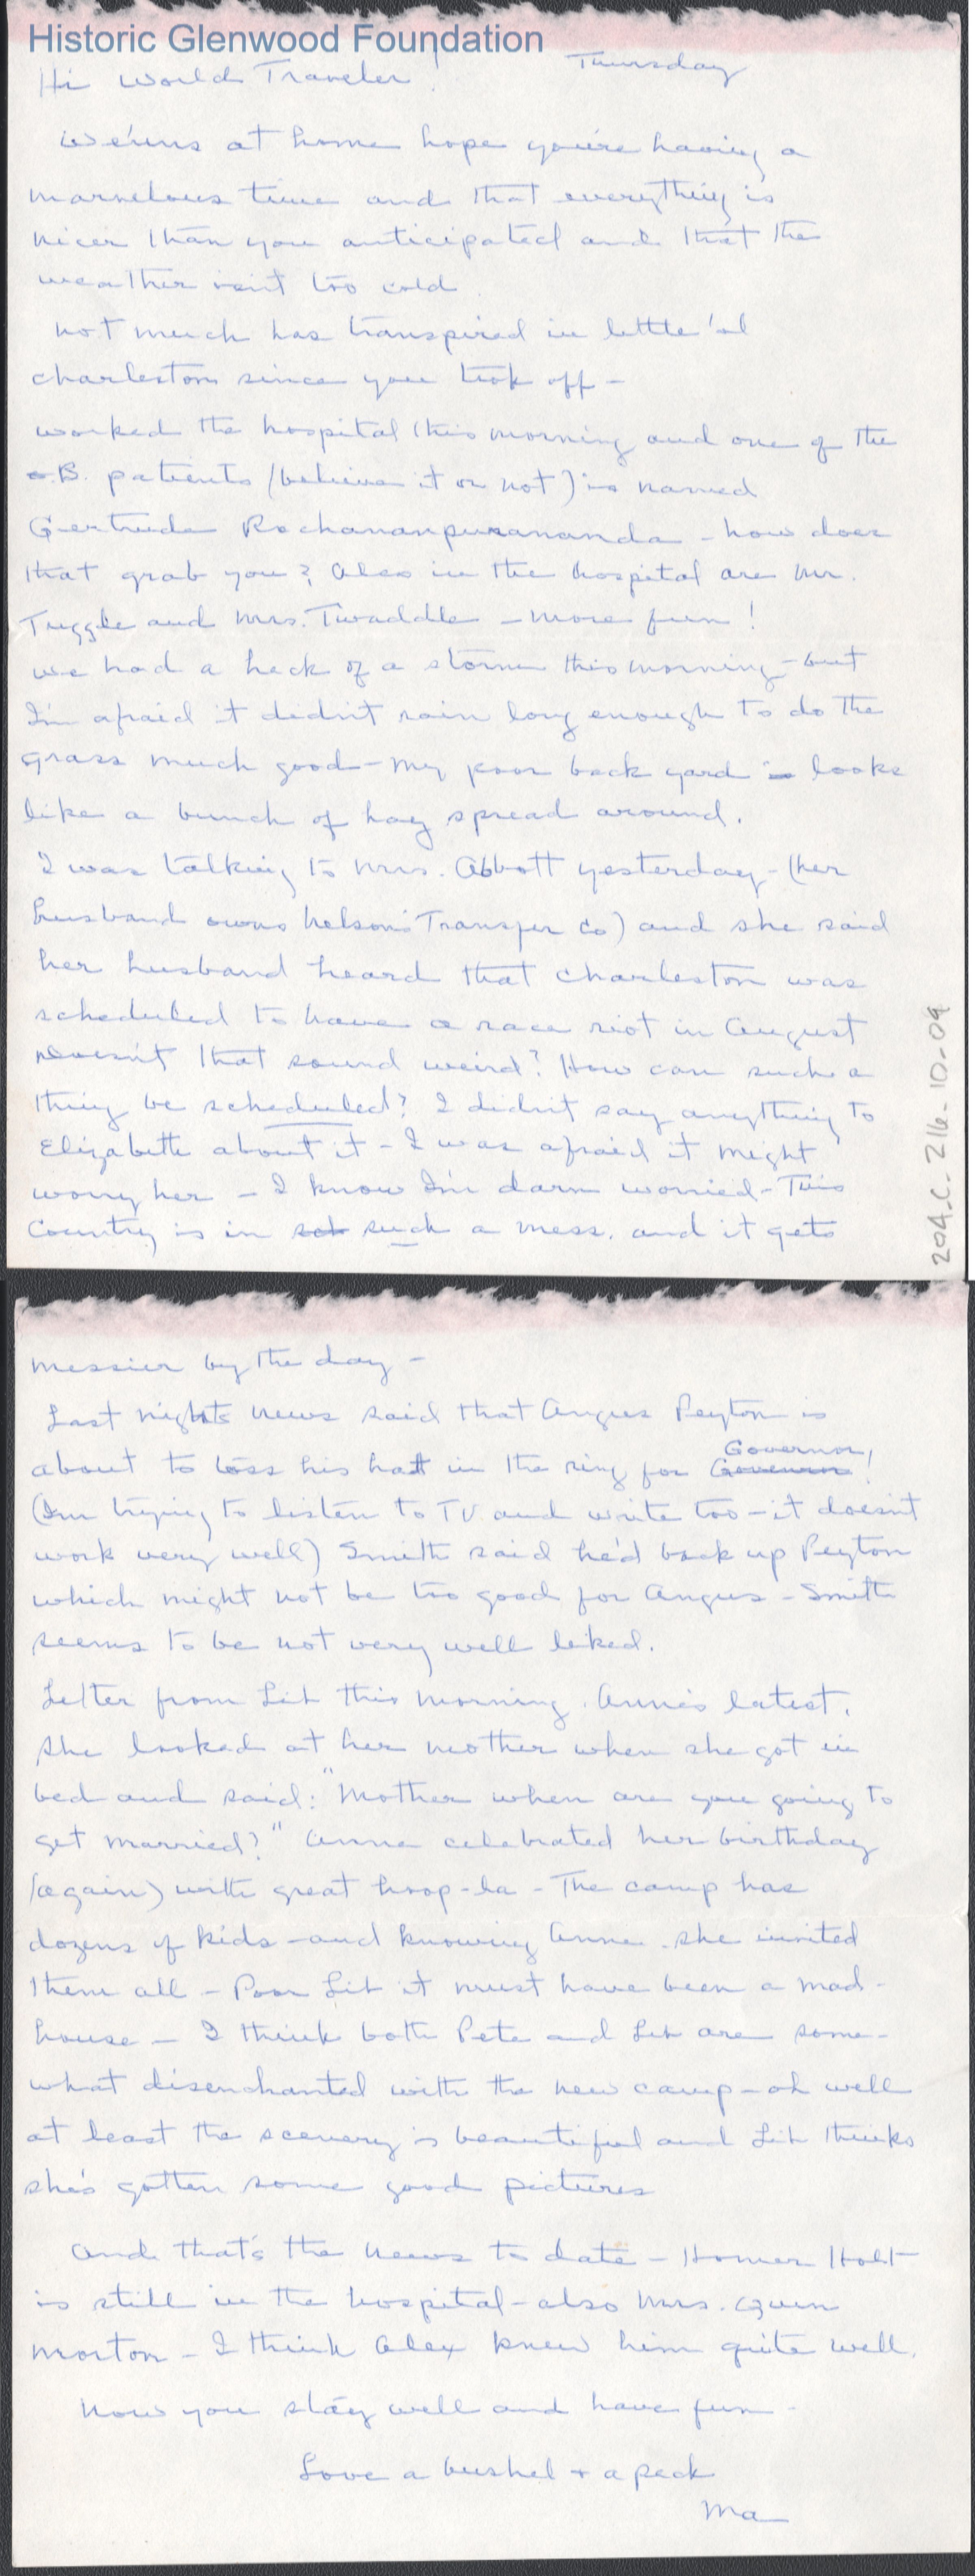 Historic Glenwood Foundation
Thursday
Hi World Traveler!
We'uns at home hope you're having a
marvelous time and that everything is
nicer than you anticipated and that the
weather isn't too cold
not much has transpired in little 'ol
charleston since you took off -
worked the hospital this morning and one of the
o.B. patients (believe it or not) is named
Gertrude Rochananpurananda - how does
that grab you? Also in the hospital are Mr.
Tuggle and Mrs. Twaddle - more fun!
we had a heck of a storm this morning - but
I'm afraid it didn't rain long enough to do the
grass much good - My poor back yard is looks
like a bunch of hay spread around.
I was talking to Mrs. Abbott yesterday - (her
husband owns Nelson's Transfer Co) and she said
her husband heard that Charleston was
scheduled to have a race riot in August
Doesn't that sound weird? How can such a
thing be scheduled? I didn't say anything to
Elizabeth about it - I was afraid it might
worry her - I know I'm darn worried - This
Country is in such a mess. and it gets
204.C.216.10-09
messier by the day -
Last nights news said that Angus Peyton is
about to toss his hat in the ring for Governor Governor!
(I'm trying to listen to TV and write too - it doesn't
work very well) Smith said he'd back up Peyton
which might not be too good for Angus - Smith
seems to be not very well liked.
Letter from Lib this morning. Anne's latest.
She looked at her mother when she got in
bed and said: "Mother when are you going to
get married?" Anne celebrated her birthday
(again) with great hoop-la - The camp has
dozens of kids - and knowing Anne she invited
them all - Poor Lib it must have been a mad-
house - I think both Pete and Lib are some-
what disenchanted with the new camp - oh well
at least the scenery is beautiful and Lib thinks
she's gotten some good pictures
And that's the news to date - Homer Holt
is still in the hospital - also Mrs. Quin
Morton - I think Alex knew him quite well.
Now you stay well and have fun -
Love a bushel + a peck
Ma